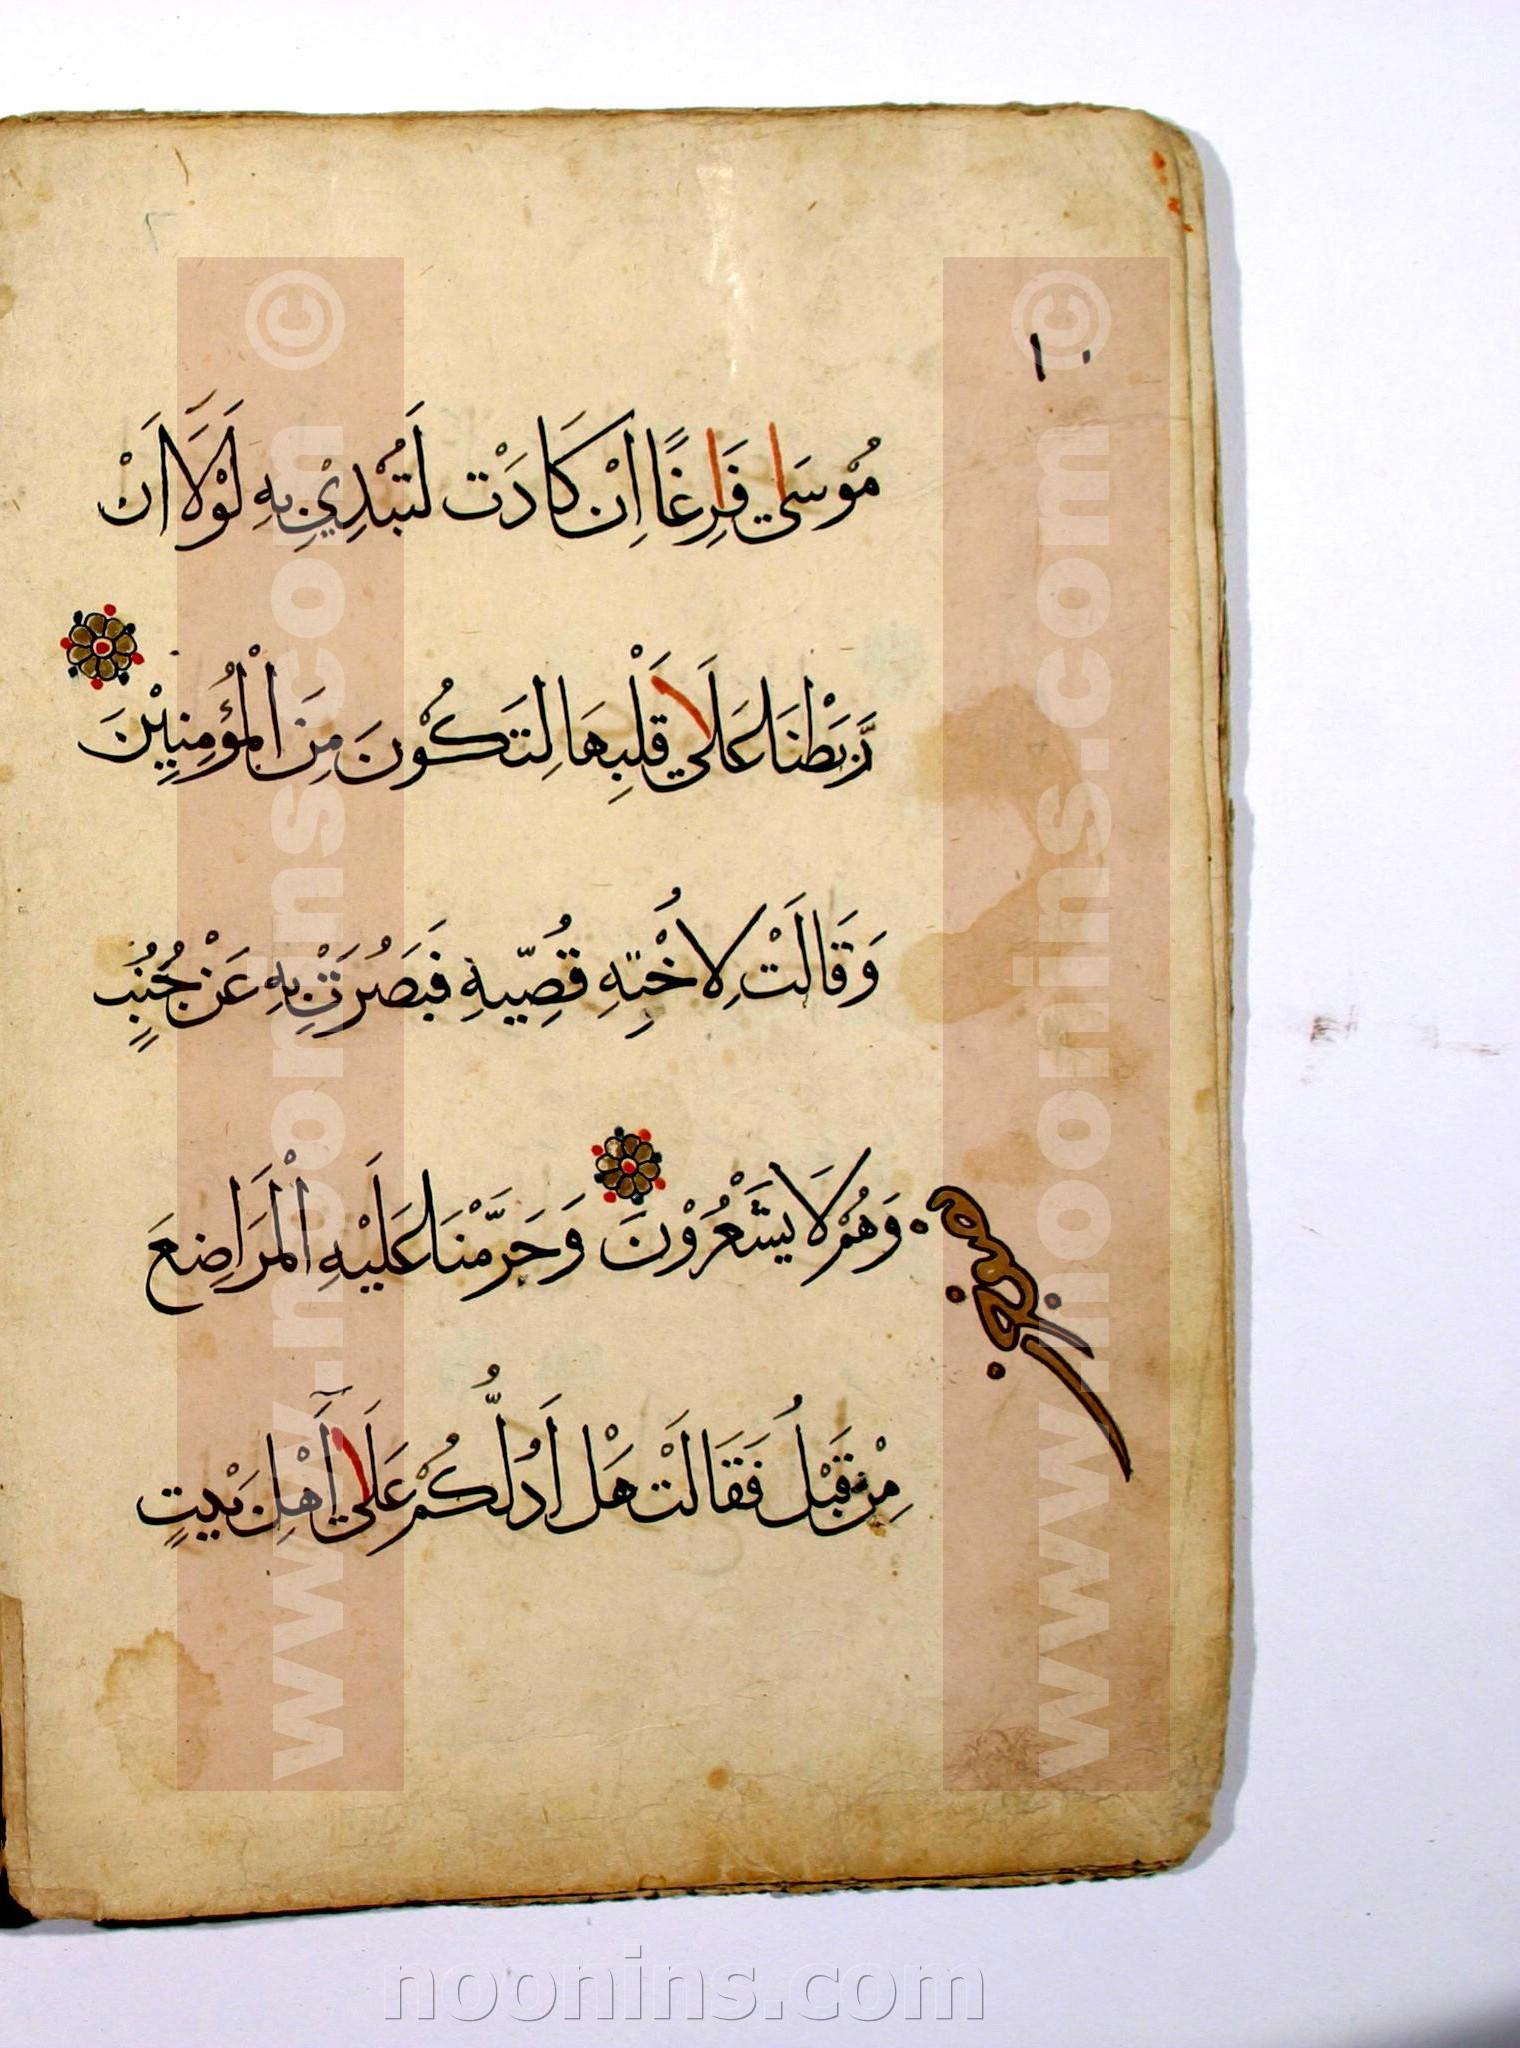 ١٠
مُوْسٰى فٰرِغًا اِنْ كَادَتْ لَتُبْدِيْ بِهِ لَوْلَا اَنْ
رَّبَطْنَا عَلٰى قَلْبِهَا لِتَكُوْنَ مِنَ الْمُؤْمِنِيْنَ
وَقَالَتْ لِاُخْتِهِ قُصِّيْهِ فَبَصُرَتْ بِهِ عَنْ جُنُبٍ
وَهُمْ لَا يَشْعُرُوْنَ وَحَرَّمْنَا عَلَيْهِ الْمَرَاضِعَ
مِنْ قَبْلُ فَقَالَتْ هَلْ اَدُلُّكُمْ عَلٰٓى اَهْلِ بَيْتٍ
www.noonins.com ©
www.noonins.com ©
noonins.com